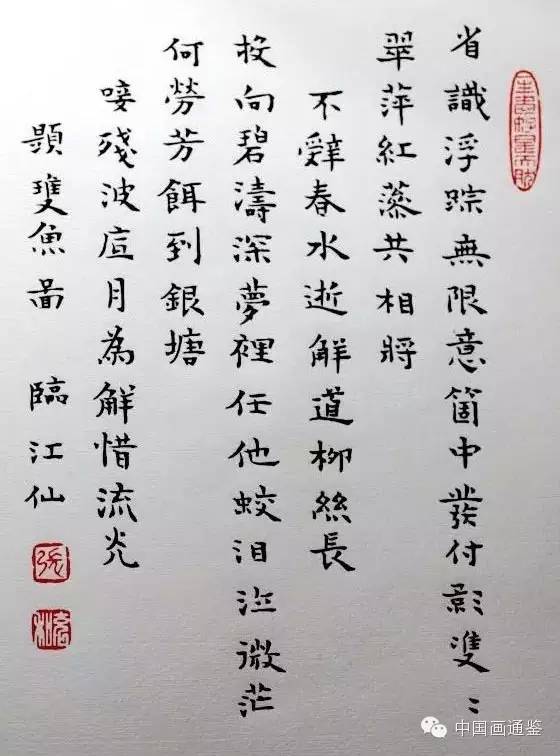 省識浮踪無限意箇中發付影雙〻
翠萍紅共相將
不辭春水逝解道柳絲長
投向碧濤深夢裡任他蛟泪泣微茫
何勞芳餌到銀塘
唼殘波底月為解惜流光
題雙魚啚 臨江仙
張
中国画通鉴